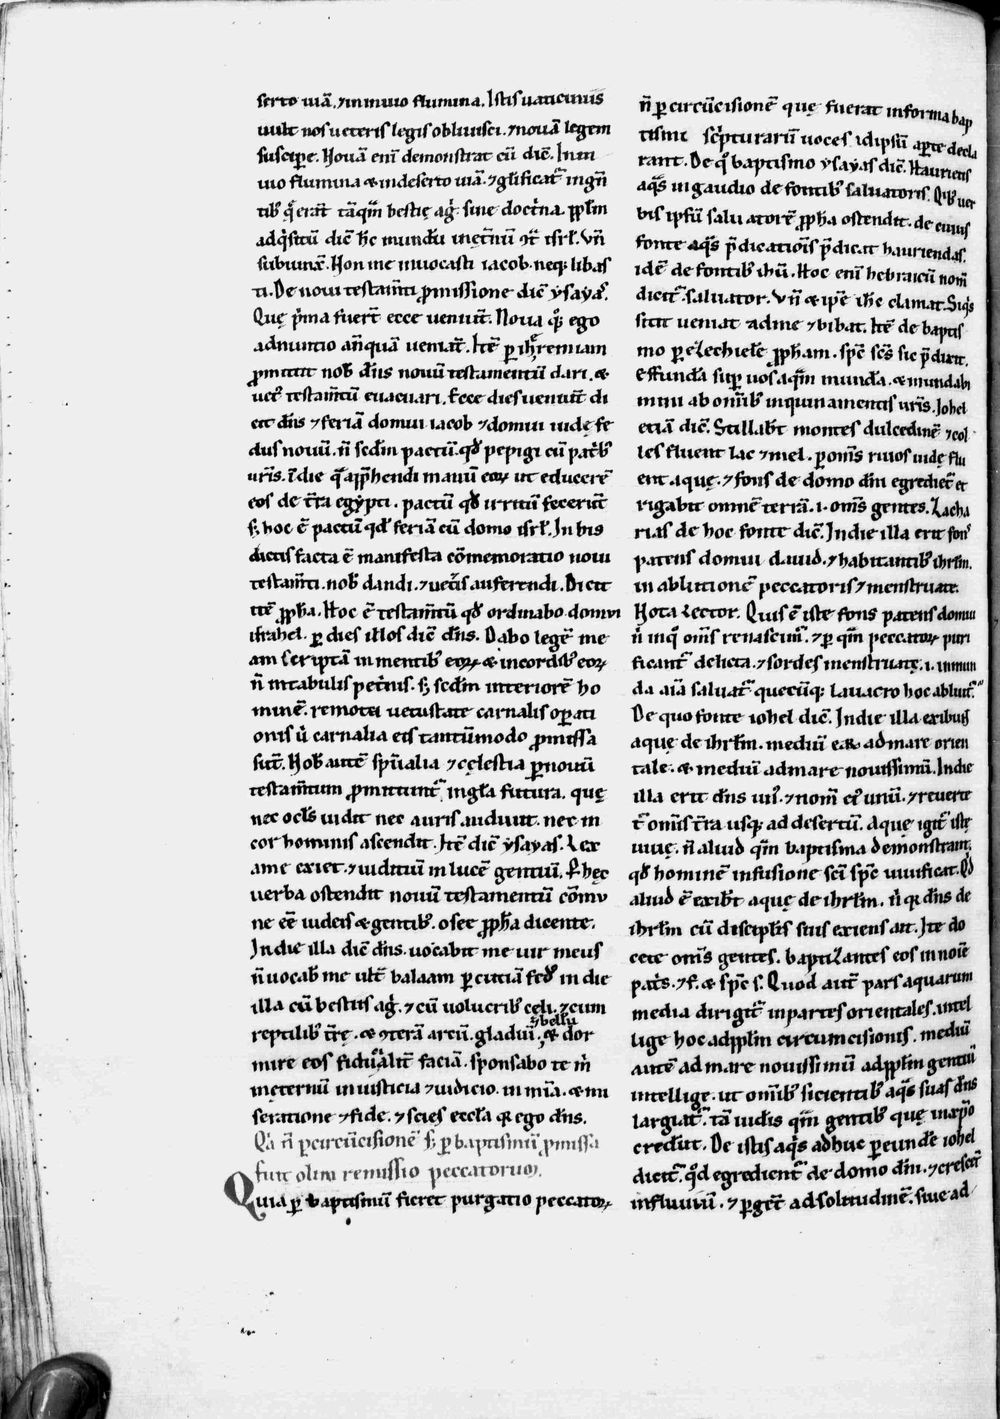 serto uiā. ⁊ in inuio flumina. Istis uaticiniis
uult nos ueteris legis obliuisci. ⁊ nouā legem
suscipe. Nouā eni̅ demonstrat cū dic̅. In in
uio flumina & in deserto uiā. ⁊ gl̅ificat᷑ in gn̅
tib᷒ q̅ erant̅ tāqm̅ bestię ag̅. sine doct̅na. ppl̅m
adq̅sitū dic̅ he mundū inęt̅nū isrl̅. Vn̅
subiunx̅. Non me inuocasti iacob. neq; libas
ti. De noui testam̅ti p̅missione dic̅ ysayas.
Quę p̅ma fuert̅ ecce ueniūt. Noua q̅q; ego
adnuntio an̅quā ueniat̅. Ite̅ p ihe̅remiam
p̅mittit nob̅ dn̅s nouū testamentū dari. &
uet᷒ testam̅tū euacuari. Ecce dies ueniūt di
cit dn̅s ⁊ feriā domui iacob ⁊ domui iudę fe
dus nouū. n̅ scdm̅ pactū. qd̅ pepigi cū pat̅b᷒
ur̅is. i̅ die q̅ app̅hendi manū eoꝝ ut educere̅
eos de t̅ra egypti. pactū qd̅ irritū fecerūt
s; hoc e̅ pactū qd̅ feriā cū domo isrl̅. In his
dictis facta e̅ manifesta co̅memoratio noui
testam̅ti. nob̅ dandi. ⁊ uet̅is auferendi. Dicit
ite̅ pp̅ha. Hoc e̅ testam̅tū qd̅ ordinabo domui
israhel. p̅ dies illos dic̅ dn̅s. Dabo lege̅ me
am scriptā in mentib᷒ eoꝝ & in cordib᷒ eoꝝ
n̅ in tabulis pet̅nis. s; scdm̅ interiore̅ ho
mine̅. remotei uetustate carnalis opati
onis u̅ carnalia eis tantūmodo p̅missa
sūt. Nob̅ aute̅ spūalia ⁊ cęlestia p nouū
testam̅tum p̅mittunt᷑ in gl̅a futura. quę
nec oculs̅ uidit nec auris audiuit. nec in
cor hominis ascendit. Ite̅ dic̅ ysayas. Lex
a me exiet. ⁊ iuditiū in luce̅ gentiū. Et hęc
uerba ostendit nouū testamentū co̅mu
ne e̅e iudeis & gentib᷒. osee pp̅ha dicente.
In die illa dic̅ dn̅s. uocabit me uir meus
n̅ uocab̅ me ult̅ balaam pcutiā fed᷒ in die
illa cū bestiis ag̅. ⁊ cū uolucrib᷒ celi. ⁊ cum
reptilib᷒ t̅rę. & ꝯterā arcū. gladiū. ⁊ bellū & dor
mire eos fidualit̅ faciā. sponsabo te m̅
in ęternū in iusticia ⁊ iudicio. in mi̅a. & mi
seratione ⁊ fide. ⁊ scies eccl̅a q̅ ego dn̅s.
Qa̅ n̅ p circūcisione̅ s; p baptismū p̅missa
fuit olim remissio peccatoruȝ.
Quia p baptismū fieret purgatio peccatoꝝ
n̅ p circūcisione̅ quę fuerat in forma bap
tismi scpturarū uoces idipsū aperte decla
rant. De q᷒ baptismo ysayas dic̅. Hauriens
aq̅s in gaudio de fontib᷒ saluatoris. Qib᷒ uer
bis ipsū saluatore̅ pp̅ha ostendit. de cuius
fonte aq̅s p̅dicatiois̅ p̅dicat hauriendas.
ide̅ de fontib᷒ ih̅u. Hoc eni̅ hebraicū nom̅
dicit᷑ saluator. Vn̅ & ip̅e ihe̅ clamat. Siq̅s
sitit ueniat ad me ⁊ bibat. Ite̅ de baptis
mo p ezechiele̅ pp̅ham. sp̅c sc̅s sic p̅dixit.
Effundā sup̅ uos aqm̅ mundā. & mundabi
mini ab om̅ib᷒ inquinamentis ur̅is. Iohel
etiā dic̅. Stillabt̅ montes dulcedine̅ ⁊ col
les fluent lac ⁊ mel. p om̅s riuos iudę flu
ent aquę. ⁊ fons de domo dn̅i egrediet᷑ et
rigabit omne̅ terrā. i. om̅s gentes. Zacha
rias de hoc fonte dic̅. In die illa erit fons
patens domui dauid. ⁊ habitantib᷒ ihrl̅m.
in ablutione̅ peccatoris ⁊ menstruate.
Nota Lector. Quis e̅ iste fons patens domui
n̅ inq̅ om̅s renascim᷒. ⁊ p qm̅ peccatoꝝ puri
ficant᷑ delicta. ⁊ sordes menstruatę. i. inmun
da ai̅a saluat᷑ quecūq; lauacro hoc abluit᷑.
De quo fonte iohel dic̅. In die illa exibūt
aquę de ihrl̅m. mediū eaꝝ ad mare orien
tale. & mediū ad mare nouissimū. In die
illa erit dn̅s un᷒. ⁊ nom̅ ei᷒ unū. ⁊ reuerte
t᷑ om̅is t̅ra usq; ad desertū. Aquę igit᷑ istę
uiuę. n̅ aliud qm̅ baptisma demonstrant.
qd̅ homine̅ infusione sc̅i sp̅c uiuificat. Qd̅
aliud e̅ exib̅t aquę de ihrl̅m. n̅ q̅ dn̅s de
ihrl̅m cū discipl̅is suis exiens ait. Ite do
cete om̅s gentes. baptizantes eos in noi̅e
pat̅s. ⁊ f. & sp̅c s. Quod aut̅ pars aquarum
media dirigit᷑ in partes orientales. intel
lige hoc ad ppl̅m circumcisionis. mediū
aute̅ ad mare nouissimū ad ppl̅m gentiū
intellige. ut om̅ib᷒ sicientib᷒ aq̅s suas dn̅s
largiat᷑. tā iudis̅ qm̅ gentib᷒ quę in xp̅o
credūt. De istis aq̅s adhuc p eunde̅ iohel
dicit᷑. qd̅ egredient᷑ de domo dn̅i. ⁊ crescet̅
in fluuiū. ⁊ pget̅ ad solitudine̅. siue ad